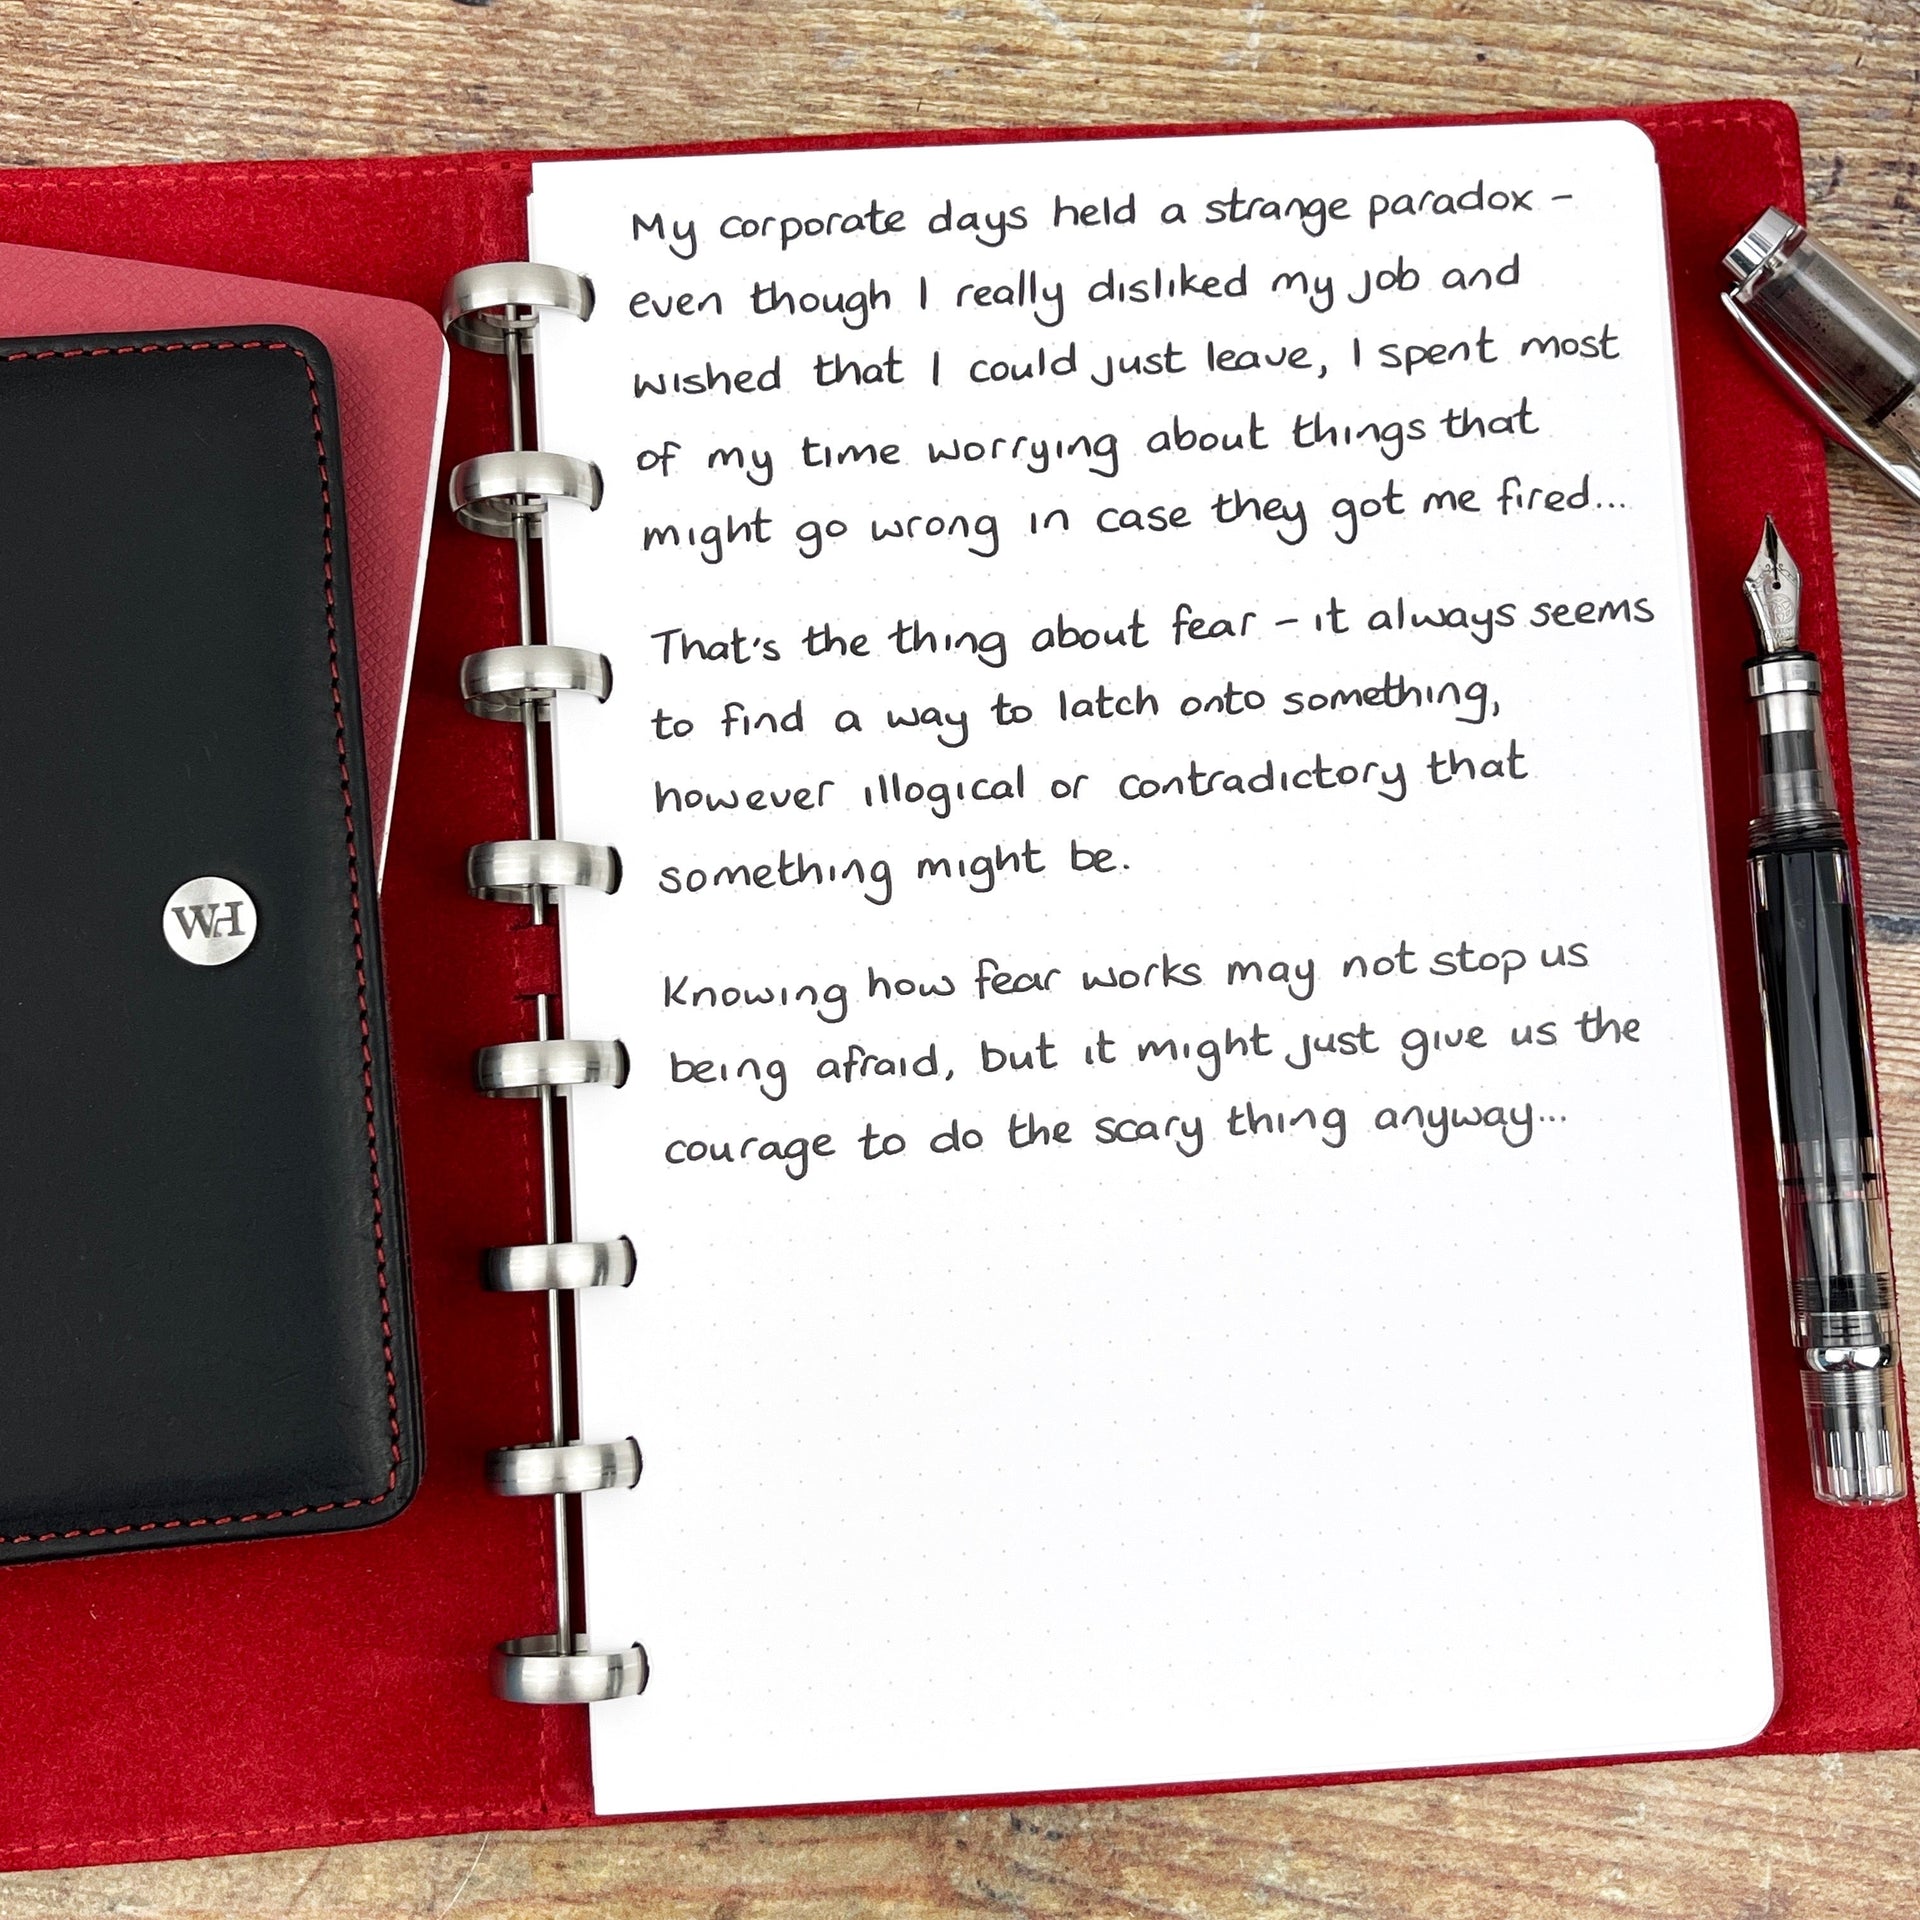 My corporate days held a strange paradox –
even though I really disliked my job and
wished that I could just leave, I spent most
of my time worrying about things that
might go wrong in case they got me fired...
That's the thing about fear – it always seems
to find a way to latch onto something,
however illogical or contradictory that
something might be.
Knowing how fear works may not stop us
being afraid, but it might just give us the
courage to do the scary thing anyway...
WH